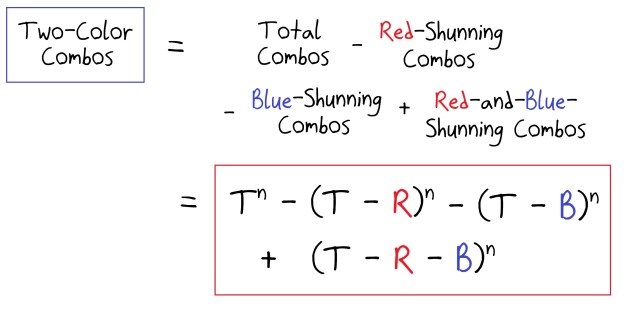 Two-Color
Combos
= Total
Combos - Red-Shunning
Combos
- Blue-Shunning
Combos + Red-and-Blue-
Shunning Combos
= Tⁿ - (T - R)ⁿ - (T - B)ⁿ
+ (T - R - B)ⁿ